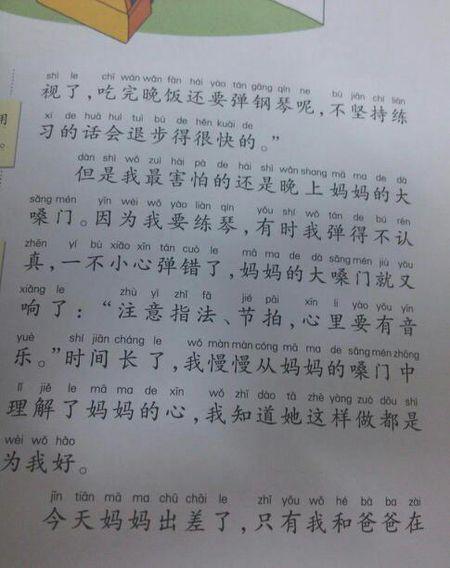 shì le chī wán wǎn fàn hái yào tán gāng qín ne bù jiān chí liàn
视了，吃完晚饭还要弹钢琴呢，不坚持练
xí de huà huì tuì bù de hěn kuài de
习的话会退步得很快的。”
dàn shì wǒ zuì hài pà de hái shì wǎn shang mā ma de dà
但是我最害怕的还是晚上妈妈的大
sǎng mén yīn wèi wǒ yào liàn qín yǒu shí wǒ tán de bú rèn
嗓门。因为我要练琴，有时我弹得不认
zhēn yí bù xiǎo xīn tán cuò le mā ma de dà sǎng mén jiù yòu
真，一不小心弹错了，妈妈的大嗓门就又
xiǎng le zhù yì zhǐ fǎ jié pāi xīn li yào yǒu yīn
响了：“注意指法、节拍，心里要有音
yuè shí jiān cháng le wǒ màn màn cóng mā ma de sǎng mén zhōng
乐。”时间长了，我慢慢从妈妈的嗓门中
lǐ jiě le mā ma de xīn wǒ zhī dào tā zhè yàng zuò dōu shì
理解了妈妈的心，我知道她这样做都是
wèi wǒ hǎo
为我好。
jīn tiān mā ma chū chāi le zhǐ yǒu wǒ hé bà ba zài
今天妈妈出差了，只有我和爸爸在
用
。